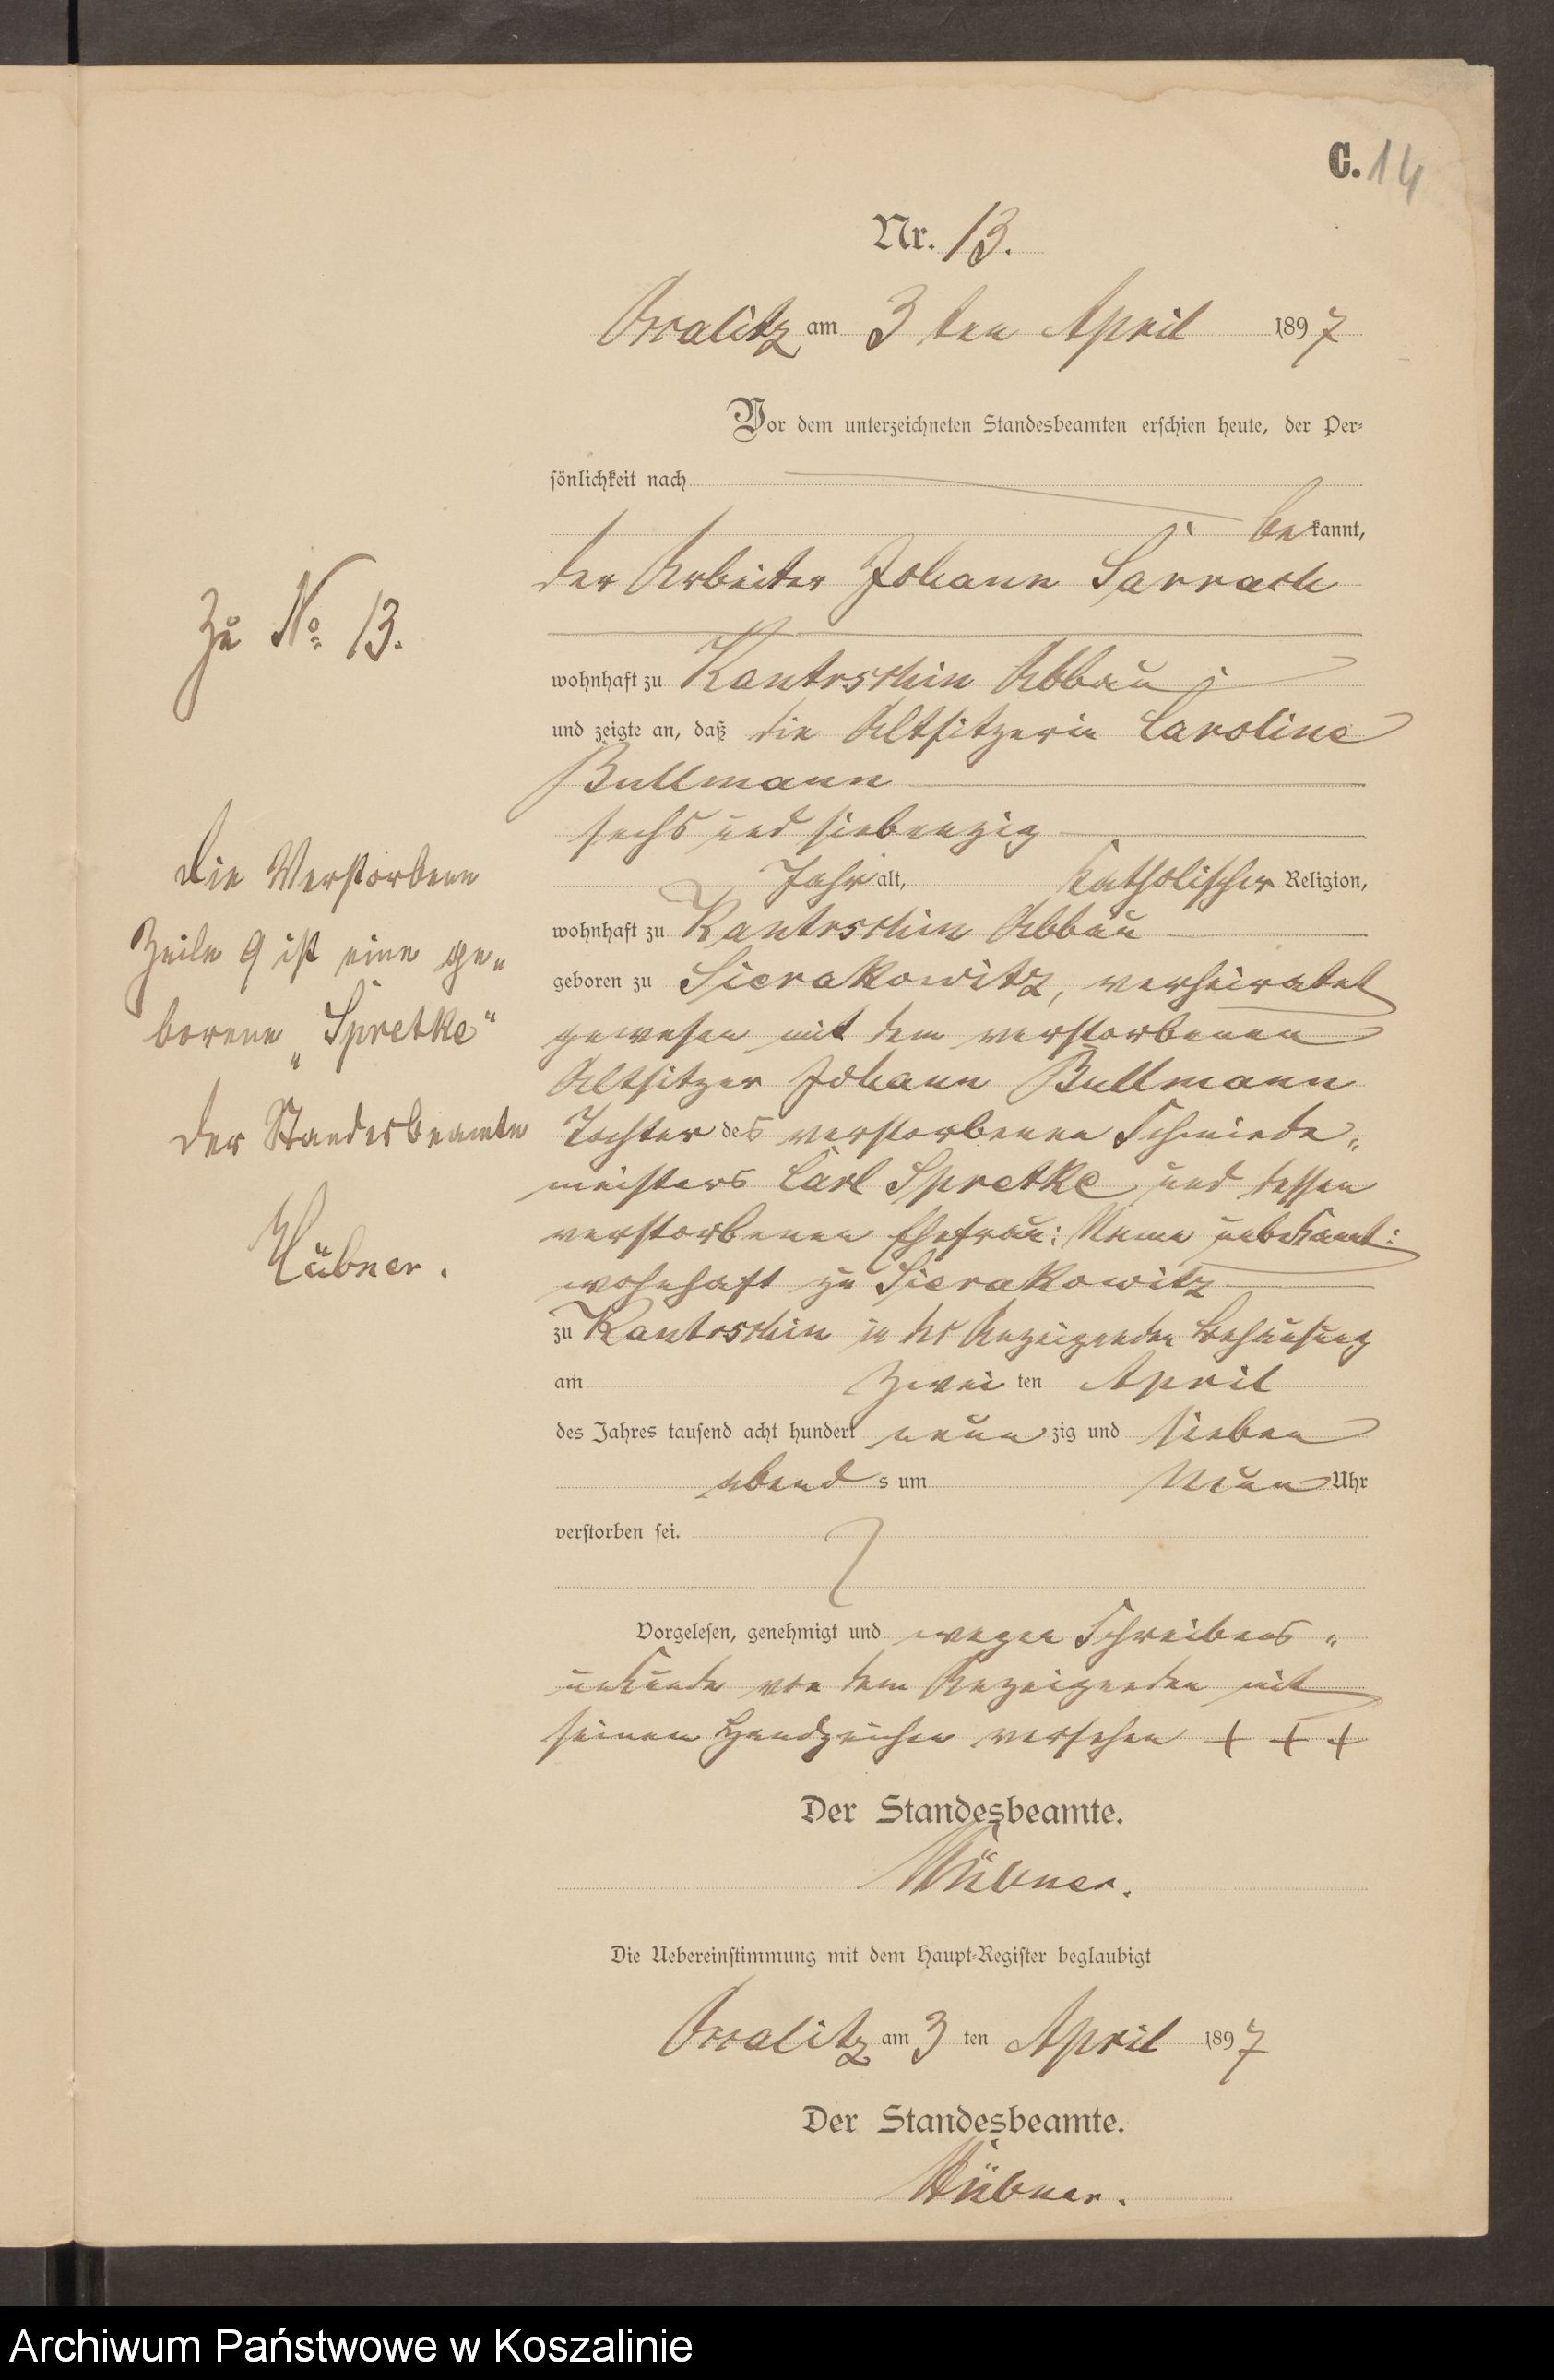 C. 14
Nr. 13.
Ossalitz am 3 ten April 1897
Vor dem unterzeichneten Standesbeamten erschien heute, der Per-
sönlichkeit nach
be kannt,
der Arbeiter Johann Sarrach
wohnhaft zu Kantrschin Abbau
und zeigte an, daß die Altsitzerin Caroline
Bullmann
sechs und siebenzig
Jahr alt, katholischer Religion,
wohnhaft zu Kantrschin Abbau
geboren zu Sierakowitz, verheiratet
gewesen mit dem verstorbenen
Altsitzer Johann Bullmann
Tochter des verstorbenen Schmiede„
meisters Carl Spretke und dessen
verstorbenen Ehefrau: Name unbekannt:
wohnhaft zu Sierakowitz
zu Kantrschin in des Anzeigenden Behausung
am zwei ten April
des Jahres tausend acht hundert neun zig und sieben
abend s um Neun Uhr
verstorben sei.
Vorgelesen, genehmigt und wegen Schreibens„
unkunde von dem Anzeigenden mit
seinen Handzeichen versehen + + +
Der Standesbeamte.
Hübner.
Die Uebereinstimmung mit dem Haupt-Register beglaubigt
Ossalitz am 3 ten April 1897
Der Standesbeamte.
Hübner.
Zu No 13.
Die Verstorbene
Zeile 9 ist eine ge„
borene „Spretke“
Der Standesbeamte
Hübner.
Archiwum Państwowe w Koszalinie